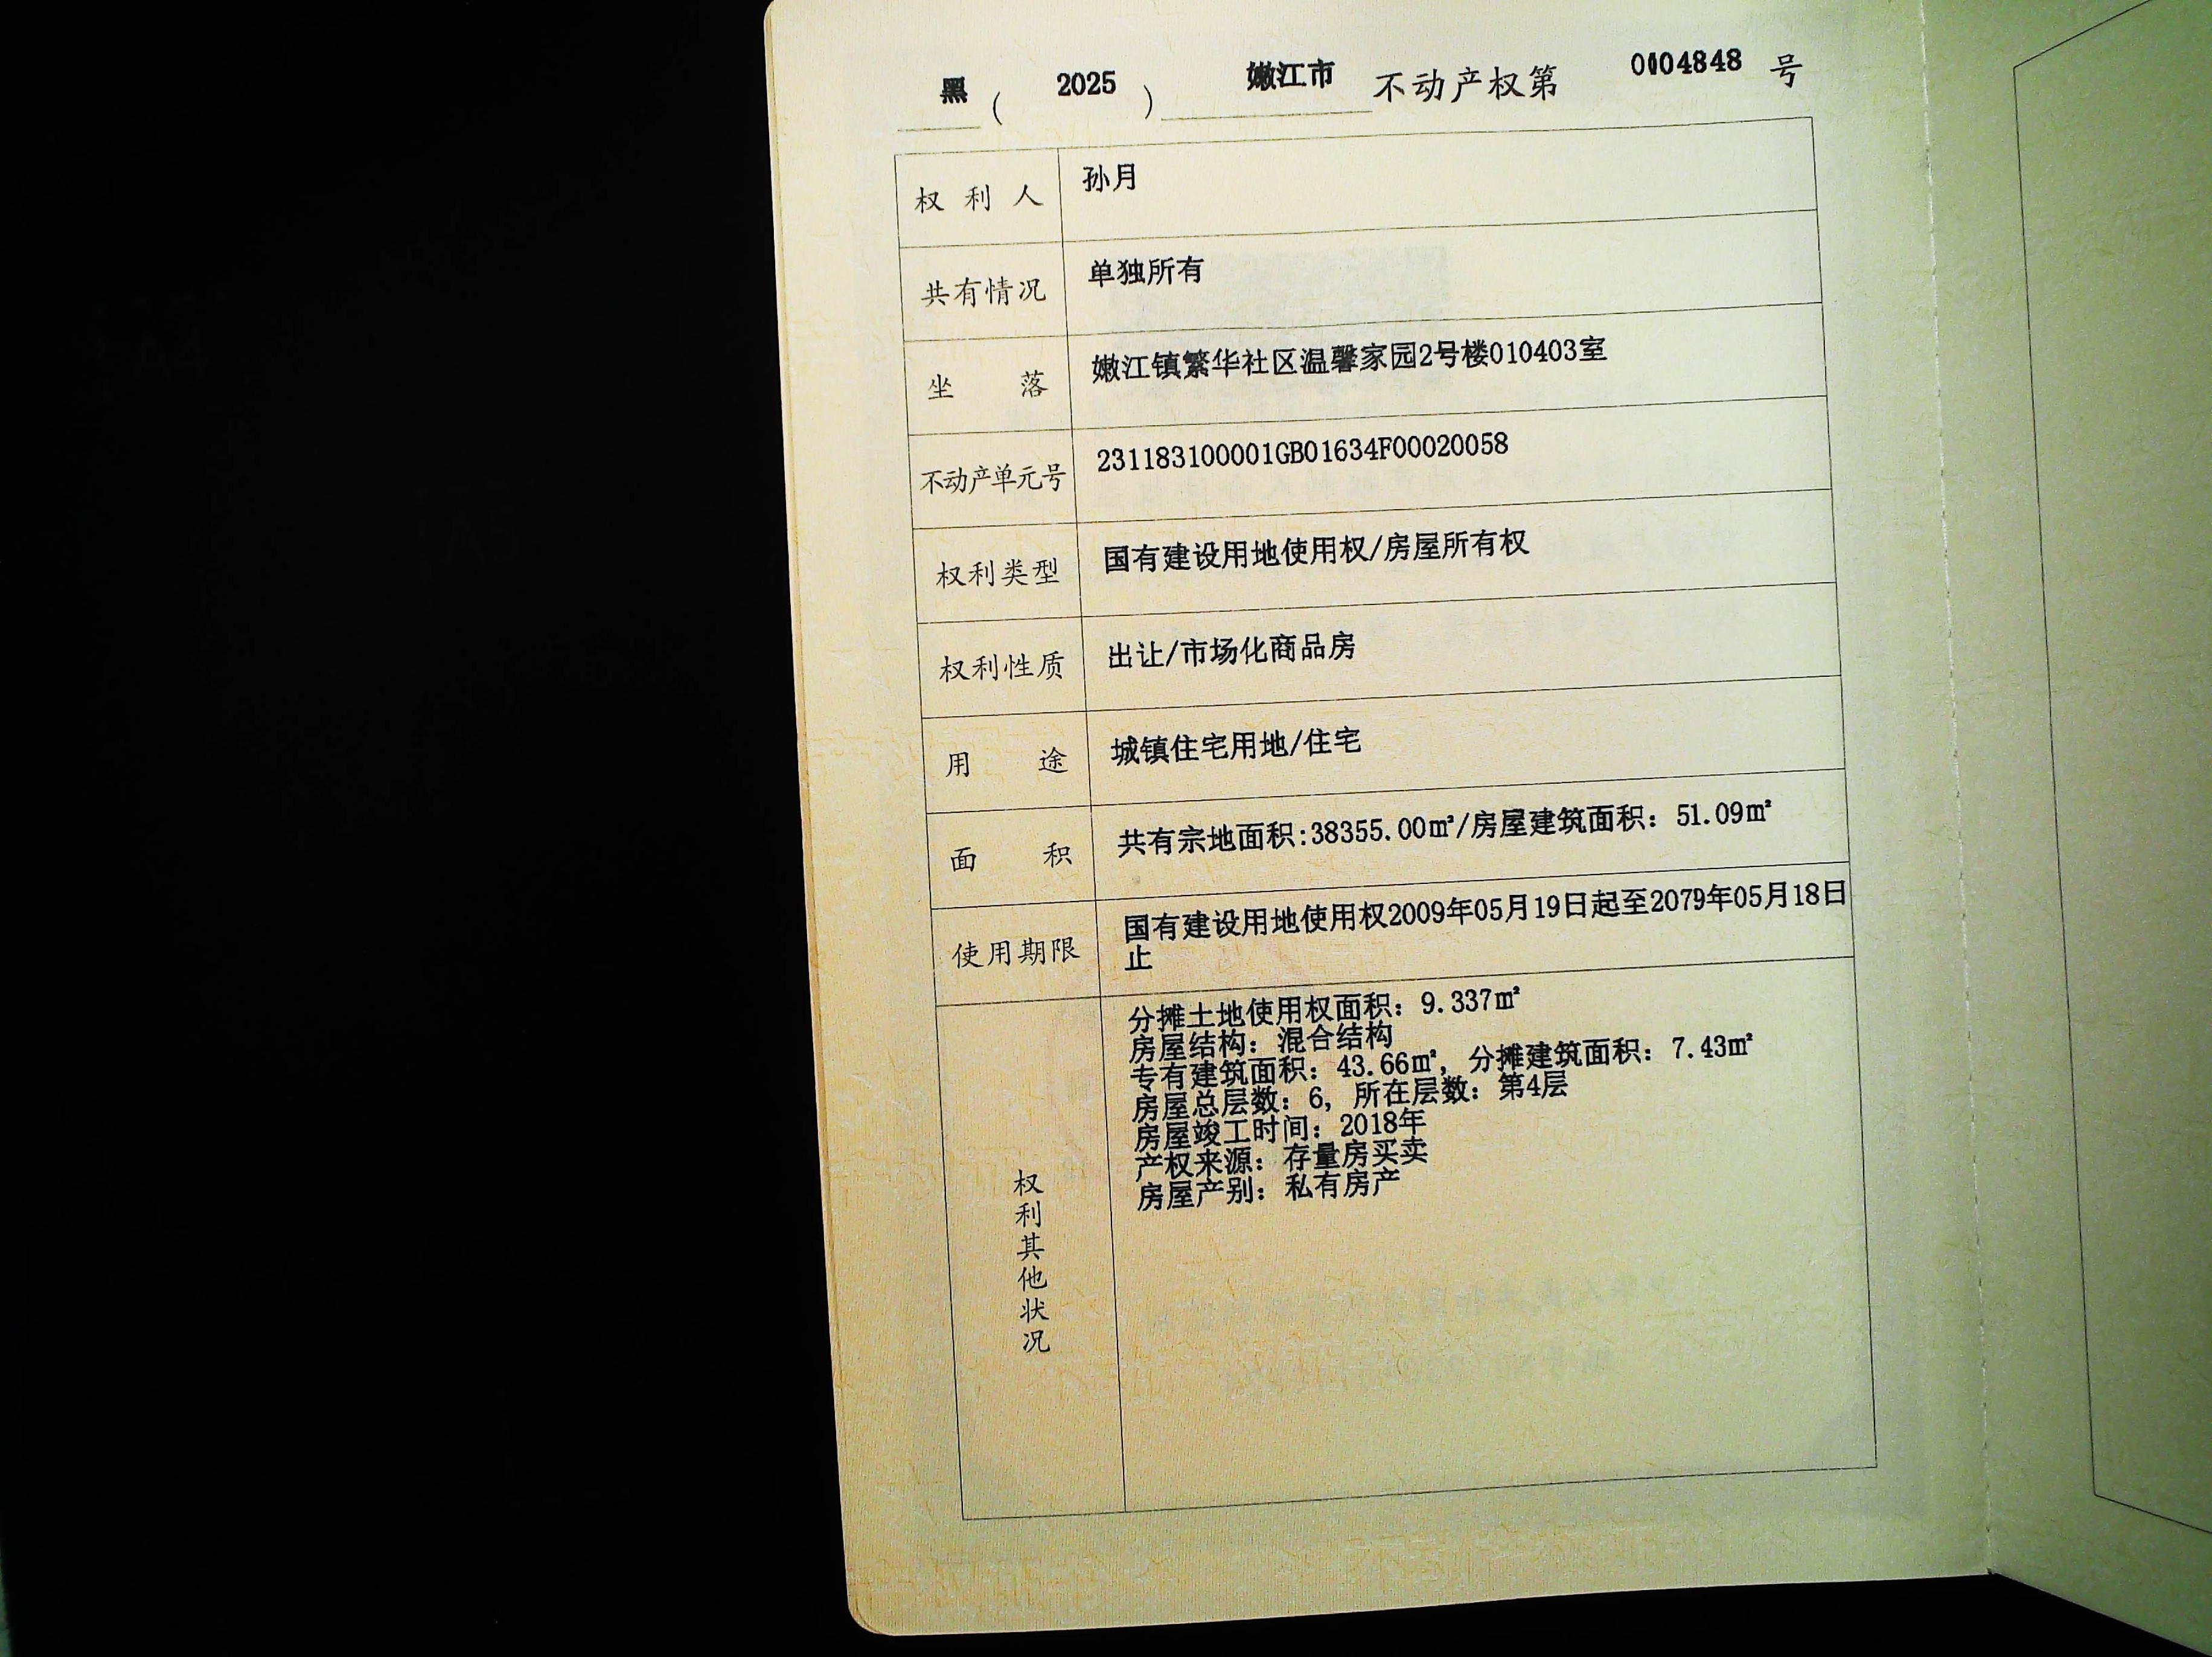 黑 ( 2025 ) 嫩江市 不动产权第 0104848 号
权利人 孙月
共有情况 单独所有
坐落 嫩江镇繁华社区温馨家园2号楼010403室
不动产单元号 231183100001GB01634F00020058
权利类型 国有建设用地使用权/房屋所有权
权利性质 出让/市场化商品房
用途 城镇住宅用地/住宅
面积 共有宗地面积:38355.00㎡/房屋建筑面积：51.09㎡
使用期限 国有建设用地使用权2009年05月19日起至2079年05月18日
止
权利其他状况
分摊土地使用权面积：9.337㎡
房屋结构：混合结构
专有建筑面积：43.66㎡，分摊建筑面积：7.43㎡
房屋总层数：6，所在层数：第4层
房屋竣工时间：2018年
产权来源：存量房买卖
房屋产别：私有房产